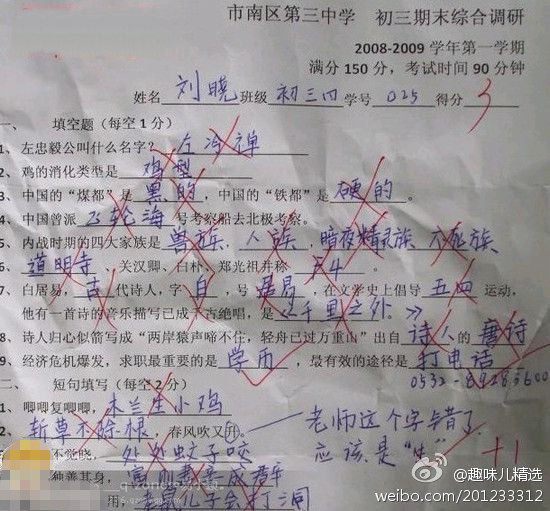 市南区第三中学 初三期末综合调研
2008-2009 学年第一学期
满分 150 分，考试时间 90 分钟
姓名 刘晓 班级 初三四 学号 025 得分 3
一、 填空题（每空 1 分）
1、左忠毅公叫什么名字？ 左冷禅
2、鸡的消化类型是 鸡型
3、中国的“煤都”是 黑的，中国的“铁都”是 硬的。
4、中国曾派 飞轮海 号考察船去北极考察。
5、内战时期的四大家族是 兽族、人族、暗夜精灵族、不死族
6、道明寺、关汉卿、白朴、郑光祖并称 F4。
7、白居易，古代诗人，字 白，号 居易，在文学史上倡导 五四 运动，
他有一首诗的音乐描写已成千古绝唱，是《千里之外》
8、诗人归心似箭写成“两岸猿声啼不住，轻舟已过万重山”出自 诗人 的 唐诗
9、经济危机爆发，求职最重要的是 学历，最有效的途径是 打电话
0532-
二、 短句填写（每空 2 分）
1、唧唧复唧唧，木兰生小鸡
2、斩草不除根，春风吹又升 老师这个字错了
应该是“生” +1
不觉晓，处处蚊子咬
独善其身，富则妻妾成群
用，老鼠儿子会打洞
@趣味儿精选
weibo.com/201233312